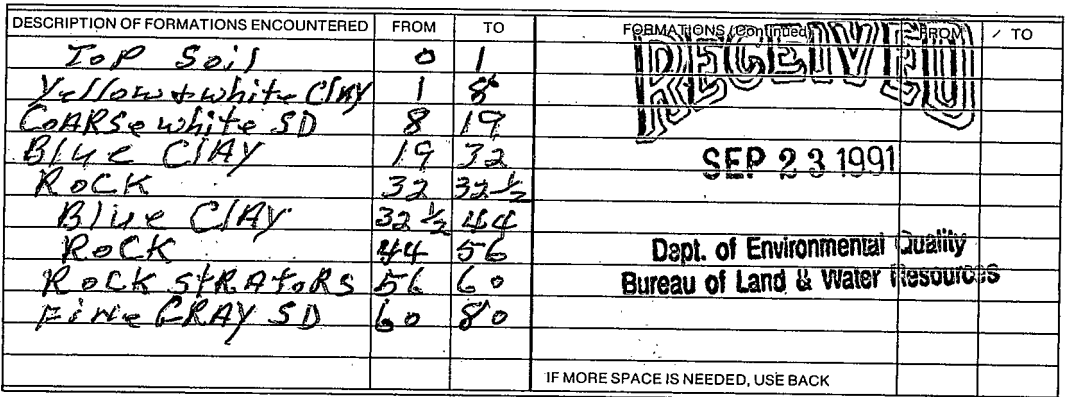 DESCRIPTION OF FORMATIONS ENCOUNTERED FROM TO
ToP Soil 0 1
Yellow & white ClAY 1 8
CoARSe white SD 8 19
Blue ClAY 19 32
RoCK 32 32 ½
Blue ClAY 32 ½ 44
RoCK 44 56
RoCK StRAtoRS 56 60
Fine GRAY SD 60 80
FORMATIONS (Continued) FROM TO
RECEIVED
SEP 23 1991
Dept. of Environmental Quality
Bureau of Land & Water Resources
IF MORE SPACE IS NEEDED, USE BACK